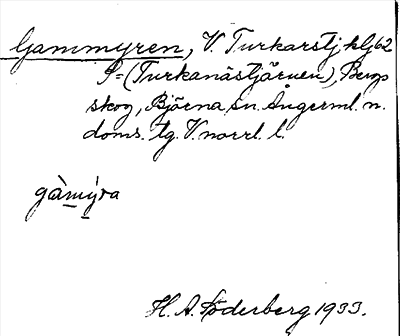 Gammyren, V. Turkarstj. klj 62
S=(Turkanästjärnen), Bergs
skog, Björna sn. Ångerml. n.
doms. lg. V. norrl. l.
gàmýra
H. A. Söderberg 1933.